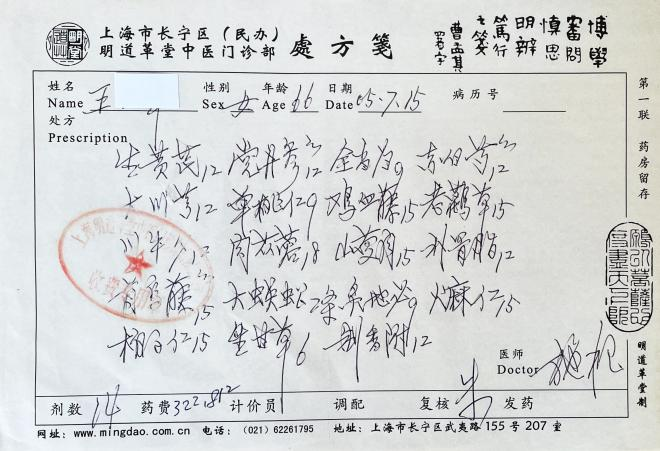 上海市长宁区（民办）
明道革堂中医门诊部
處方箋
博學
審問
慎思
明辨
篤行
之箋
曹孟其
署字
姓名 Name 王
性别 Sex 女
年龄 Age 66
日期 Date 05.7.15
病历号
处方
Prescription
生黄芪12 党丹参各12 全当归9 赤白芍各12
大川芎12 单桃仁9 鸡血藤15 老鹳草15
川牛 12 肉苁蓉18 山萸肉15 补骨脂12
青风藤15 大蜈蚣2条 炙地必9 火麻仁15
柏子仁15 生甘草6 制香附12
医师
Doctor 施杞
剂数 14
药费 322
计价员
调配
复核 朱
发药
网址：www.mingdao.com.cn 电话：(021) 62261795 地址：上海市长宁区武夷路155号207室
第一联 药房留存
明道革堂制